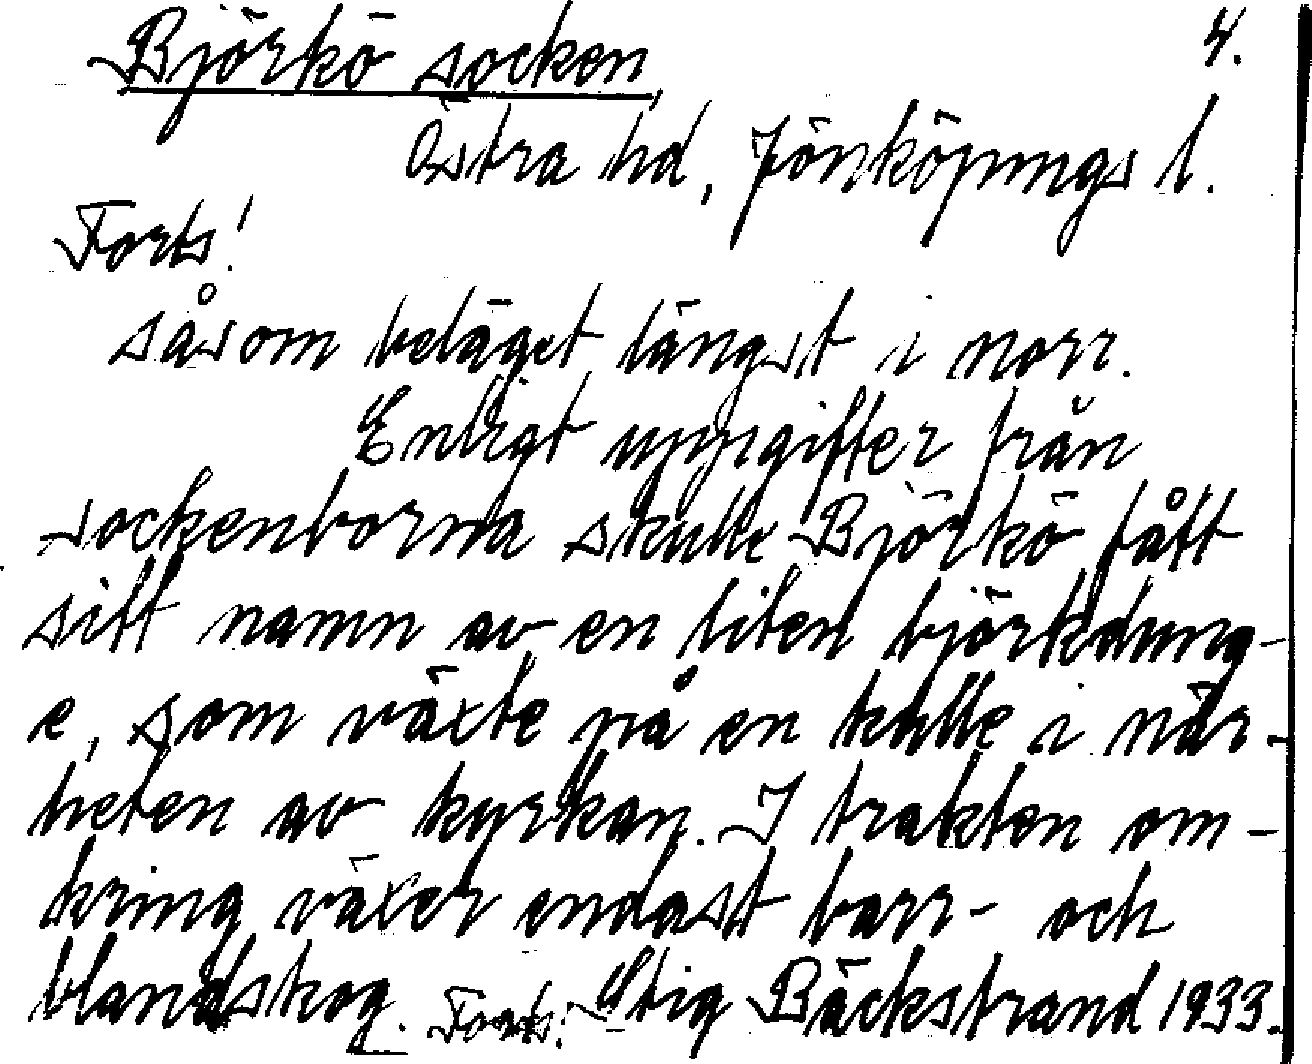 Björkö socken, 4.
Östra hd, Jönköpings l.
Forts!
såsom beläget längst i norr.
Enligt uppgifter från
sockenborna skulle Björkö fått
sitt namn av en liten björkdung-
e, som växte på en kulle i när-
heten av kyrkan. I trakten om-
kring växer endast barr- och
blandskog. Forts! Stig Bäckstrand 1933.